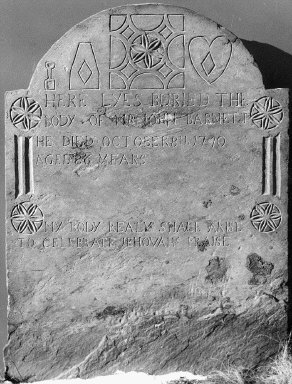 HERE LYES BURIED THE
BODY OF MR JOHN
HE DIED OCTOBER 1790
AGED YEARS
MY BODY READY SHALL
TO CELEBRATE JEHOVAHS PRAISE